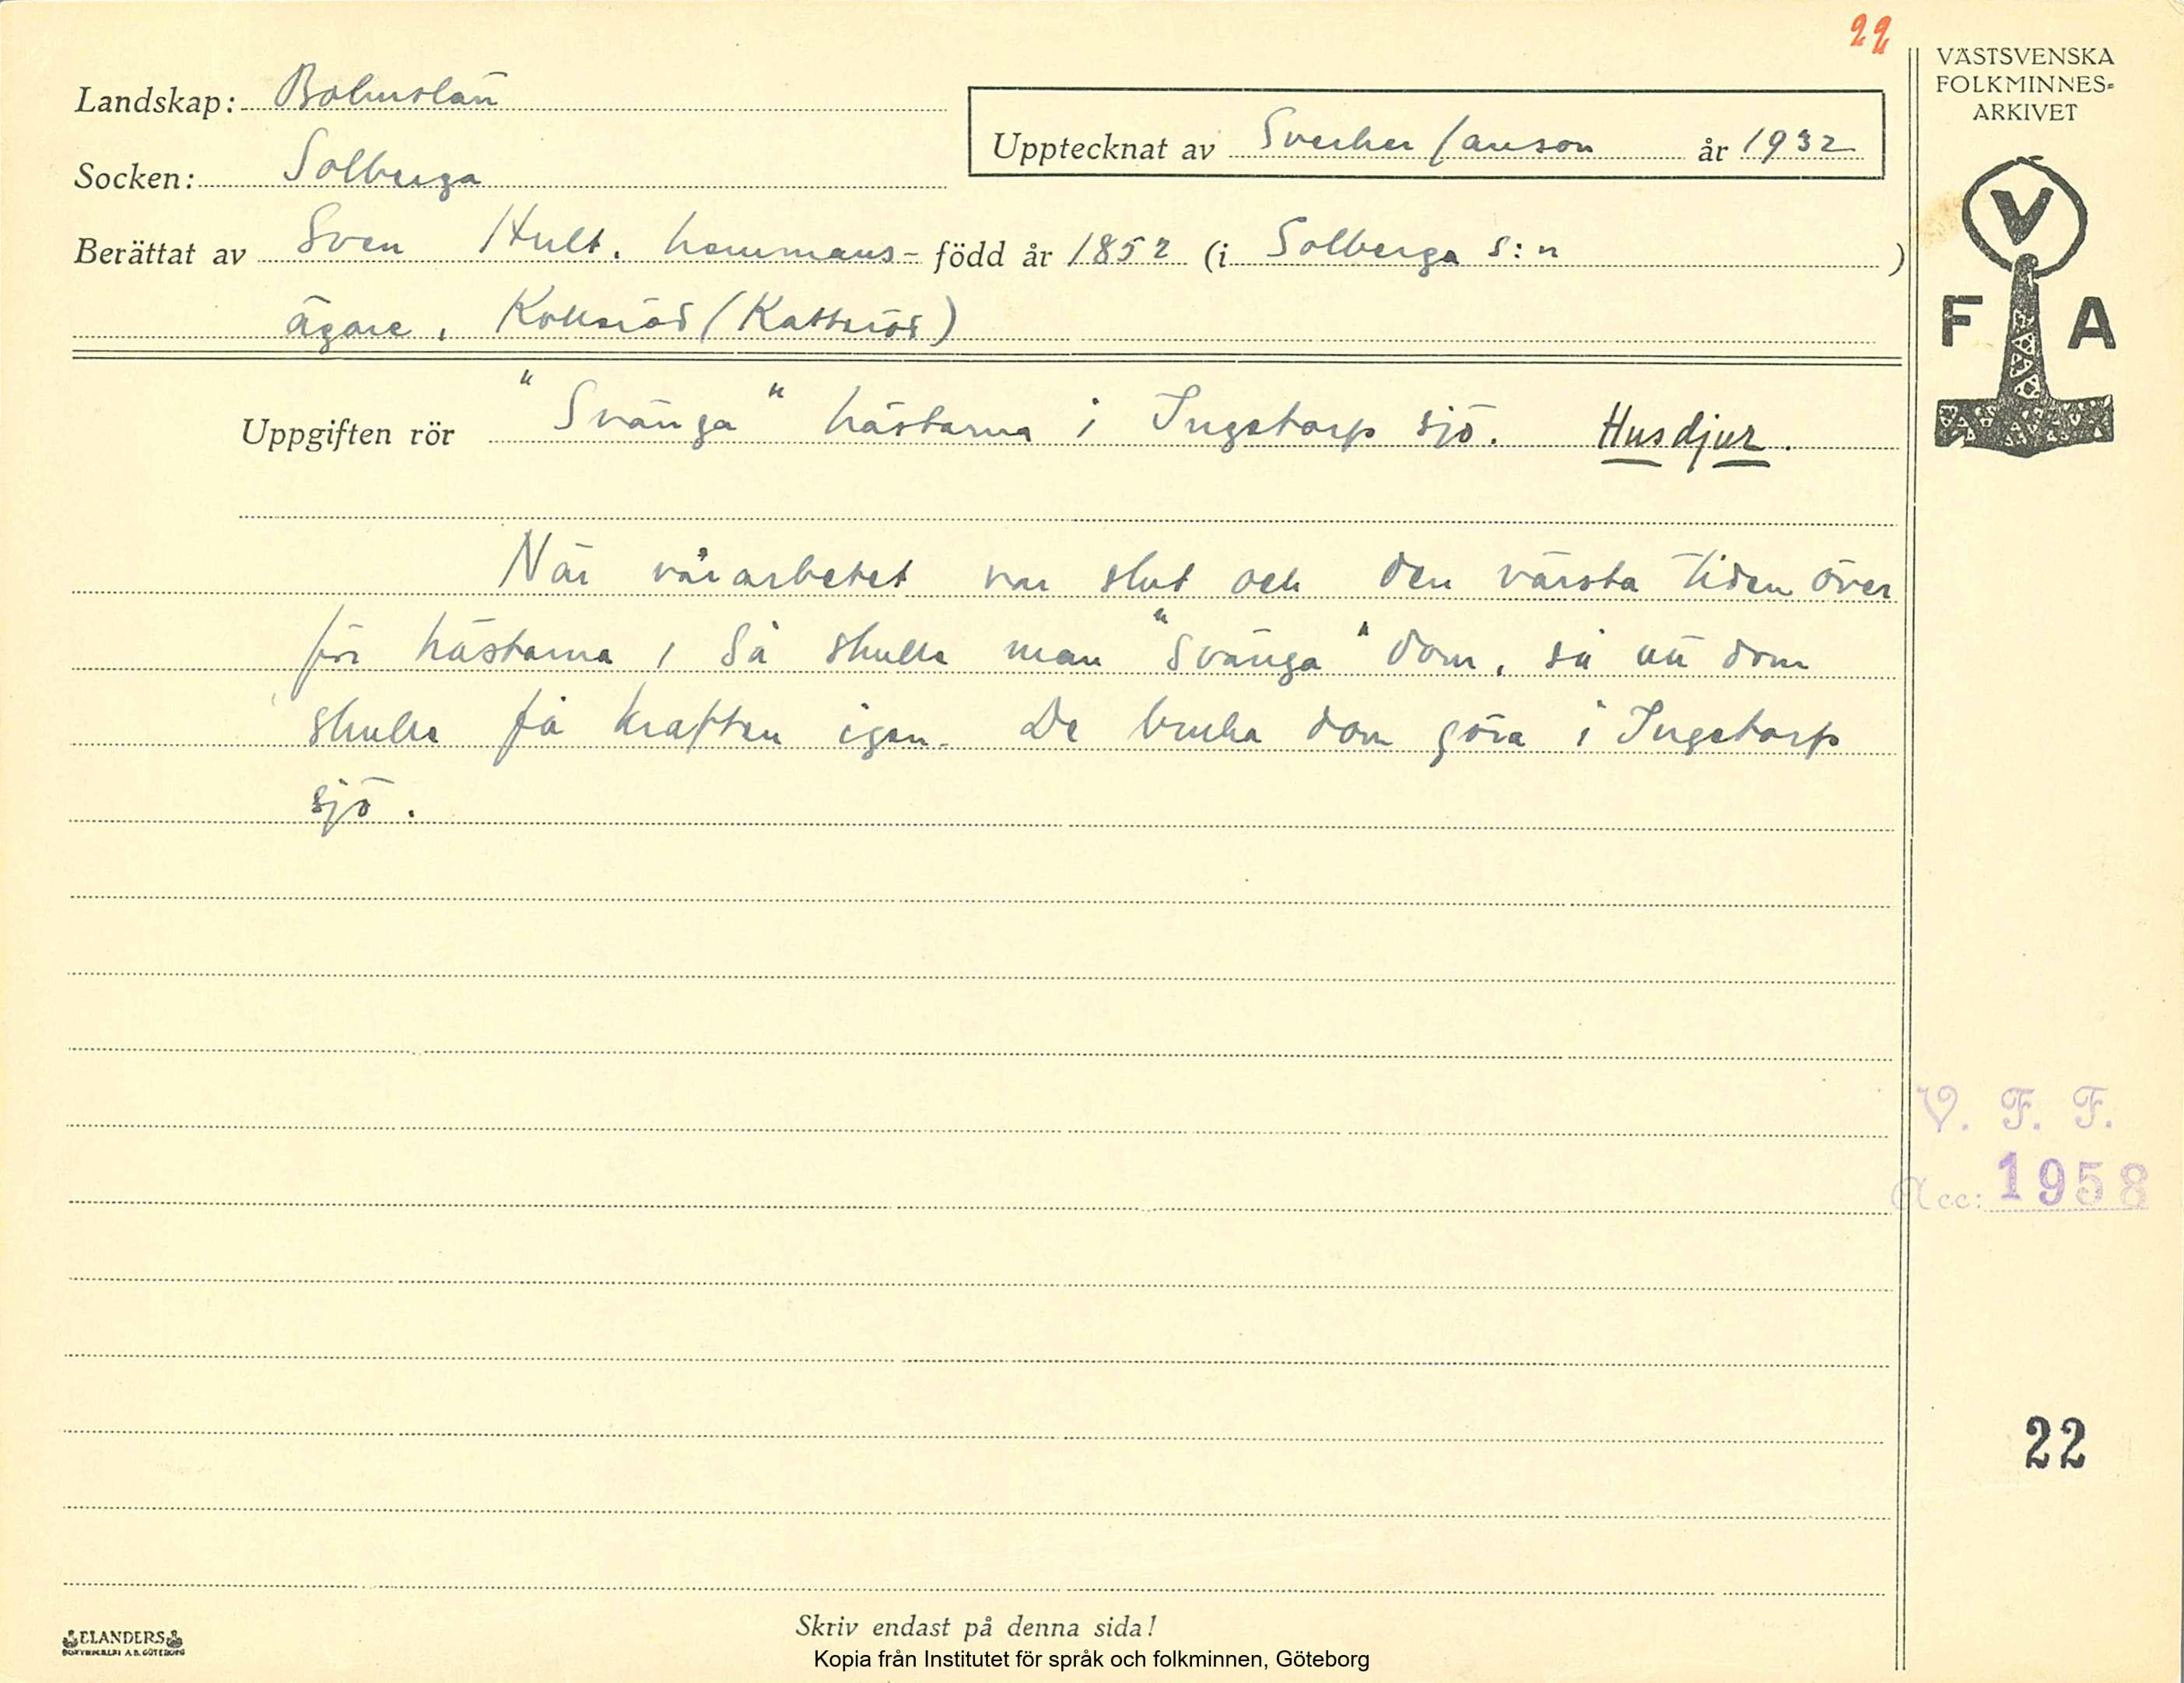 22
VÄSTSVENSKA
FOLKMINNES-
ARKIVET
Landskap: Bohuslän
Upptecknat av Sverker Janson år 1932
Socken: Solberga
Berättat av Sven Hult. hemmans- född år 1852 (i Solberga s:n )
ägare, (Kattröd)
V
F A
Uppgiften rör "Svänga" hästarna i Ingetorp sjö. Husdjur.
När vårarbetet var slut och den värsta tiden över
för hästarna, så skulle man "svänga" dom, så att dom
skulle få kraften igen. De bruka dom göra i Ingetorp
sjö.
V. F. F.
Acc: 1958
22
Skriv endast på denna sida!
ELANDERS
BOKTRYCKERI A.B. GÖTEBORG
Kopia från Institutet för språk och folkminnen, Göteborg